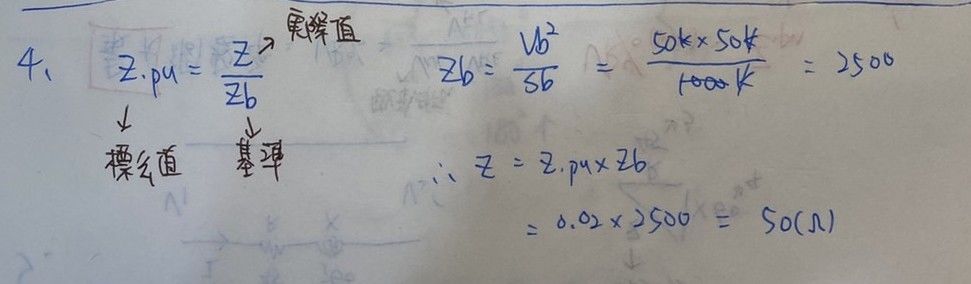 4、 Z.pu = Z/Zb → 實際值
↓ 標么值 ↓ 基準
Zb = Vb²/Sb = 50k × 50k/1000k = 2500
∴ Z = Z.pu × Zb
= 0.02 × 2500 = 50(Ω)